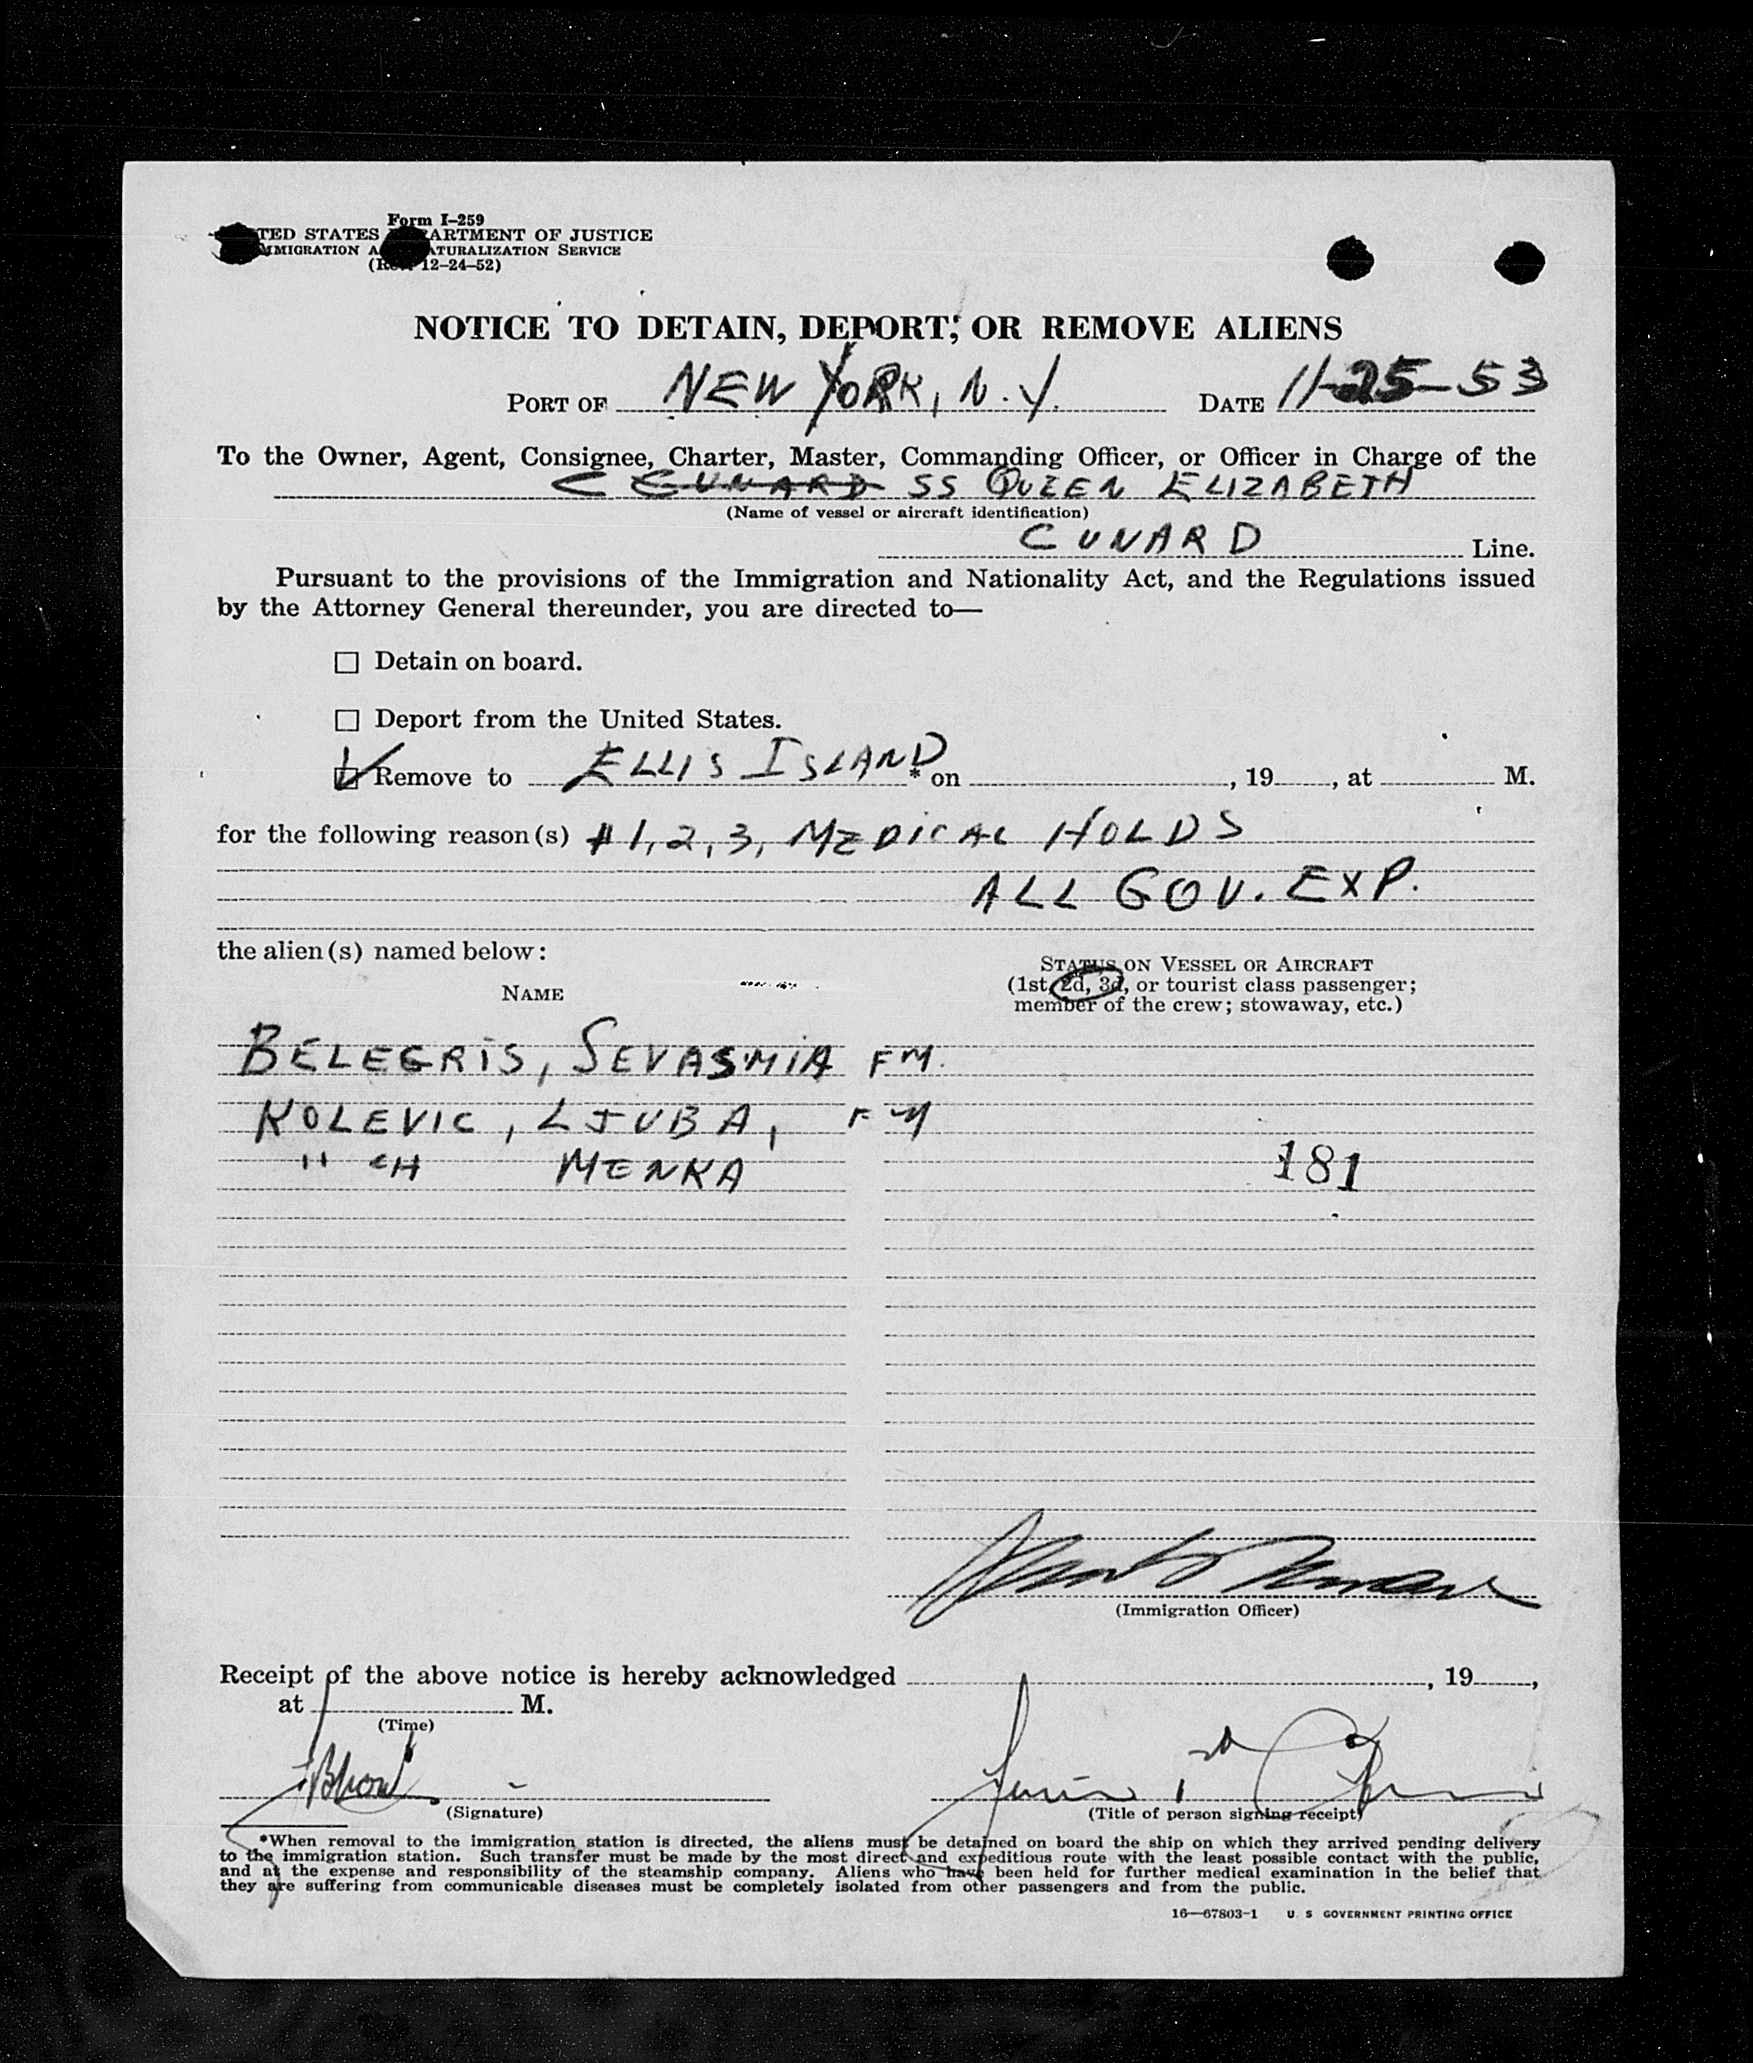 Form I–259
TED STATES ARTMENT OF JUSTICE
MMIGRATION A ATURALIZATION SERVICE
(Re 12–24–52)
NOTICE TO DETAIN, DEPORT, OR REMOVE ALIENS
PORT OF NEW YORK, N.Y. DATE 11-25-53
To the Owner, Agent, Consignee, Charter, Master, Commanding Officer, or Officer in Charge of the
C CUNARD SS QUEEN ELIZABETH
(Name of vessel or aircraft identification)
CUNARD Line.
Pursuant to the provisions of the Immigration and Nationality Act, and the Regulations issued
by the Attorney General thereunder, you are directed to—
☐ Detain on board.
☐ Deport from the United States.
☑ Remove to ELLIS ISLAND * on , 19 , at M.
for the following reason(s) # 1, 2, 3, MEDICAL HOLDS
ALL GOV. EXP.
the alien(s) named below:
STATUS ON VESSEL OR AIRCRAFT
(1st, 2d, 3d, or tourist class passenger;
member of the crew; stowaway, etc.)
NAME
BELEGRIS, SEVASMIA FM.
KOLEVIC, LJUBA, FM
" CH MENKA
181
(Immigration Officer)
Receipt of the above notice is hereby acknowledged , 19 ,
at M.
(Time)
(Signature)
(Title of person signing receipt)
*When removal to the immigration station is directed, the aliens must be detained on board the ship on which they arrived pending delivery
to the immigration station. Such transfer must be made by the most direct and expeditious route with the least possible contact with the public,
and at the expense and responsibility of the steamship company. Aliens who have been held for further medical examination in the belief that
they are suffering from communicable diseases must be completely isolated from other passengers and from the public.
16—67803-1 U. S GOVERNMENT PRINTING OFFICE